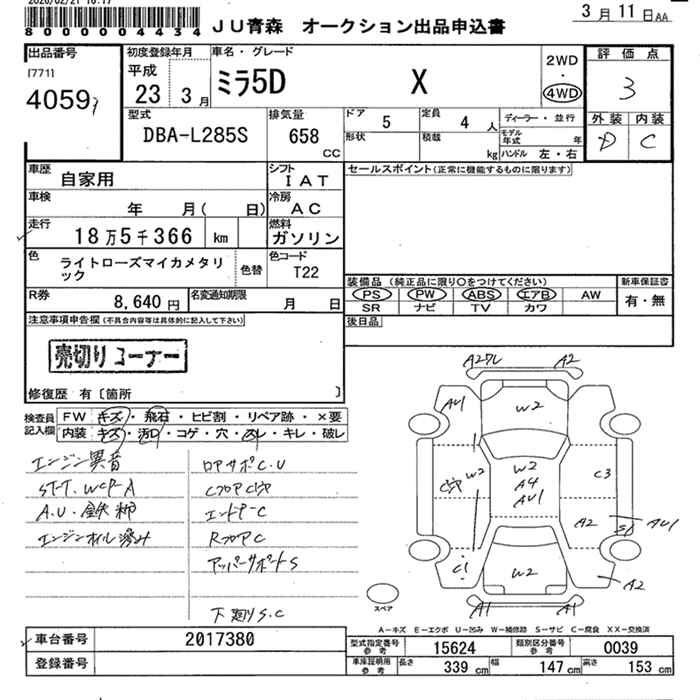 2020/02/21 16:17
800004434
JU青森 オークション出品申込書
3月11日AA
出品番号
[771]
4059
初度登録年月
平成
23 3月
車名・グレード
ミラ5D X
2WD
・
4WD
評価点
3
外装 内装
D C
型式
DBA-L285S
排気量
658
CC
ドア 5
定員 4 人
形状
積載 kg
ディーラー・並行
モデル年式 年
ハンドル 左・右
車歴
自家用
シフト
IAT
セールスポイント(正常に機能するものに限ります)
車検
年 月( 日)
冷房
AC
走行
18万5千366 km
燃料
ガソリン
色
ライトローズマイカメタリック
色替
色コード
T22
装備品(純正品に限り○をつけてください)
PS PW ABS エアB AW
SR ナビ TV カワ
新車保証書
有・無
R券
8,640円
名変通知期限
月 日
後日品
注意事項申告欄(不具合内容等は具体的に記入して下さい)
売切りコーナー
修復歴 有〔箇所 〕
検査員記入欄
FW キズ・飛石・ヒビ割・リペア跡・×要
内装 キズ・汚れ・コゲ・穴・スレ・キレ・破レ
エンジン異音
A.U.鉄粉
エンジンオイル滲み
ロアサポC.U
CフロアC穴
エンドP-C
RフロアC
アッパーサポートS
下廻りS.C
A2フレ A2
AU1
W2
C穴 W2
W2
A4
AU1
C3
A2
S1 AU1
C1
W2
A2
A1 A1
スペア
A-キズ E-エクボ U-凹み W-補修跡 S-サビ C-腐食 XX-交換済
車台番号 2017380
登録番号
型式指定番号 参考 15624
類別区分番号 参考 0039
車庫証明用 参考 長さ 339cm 幅 147cm 高さ 153cm